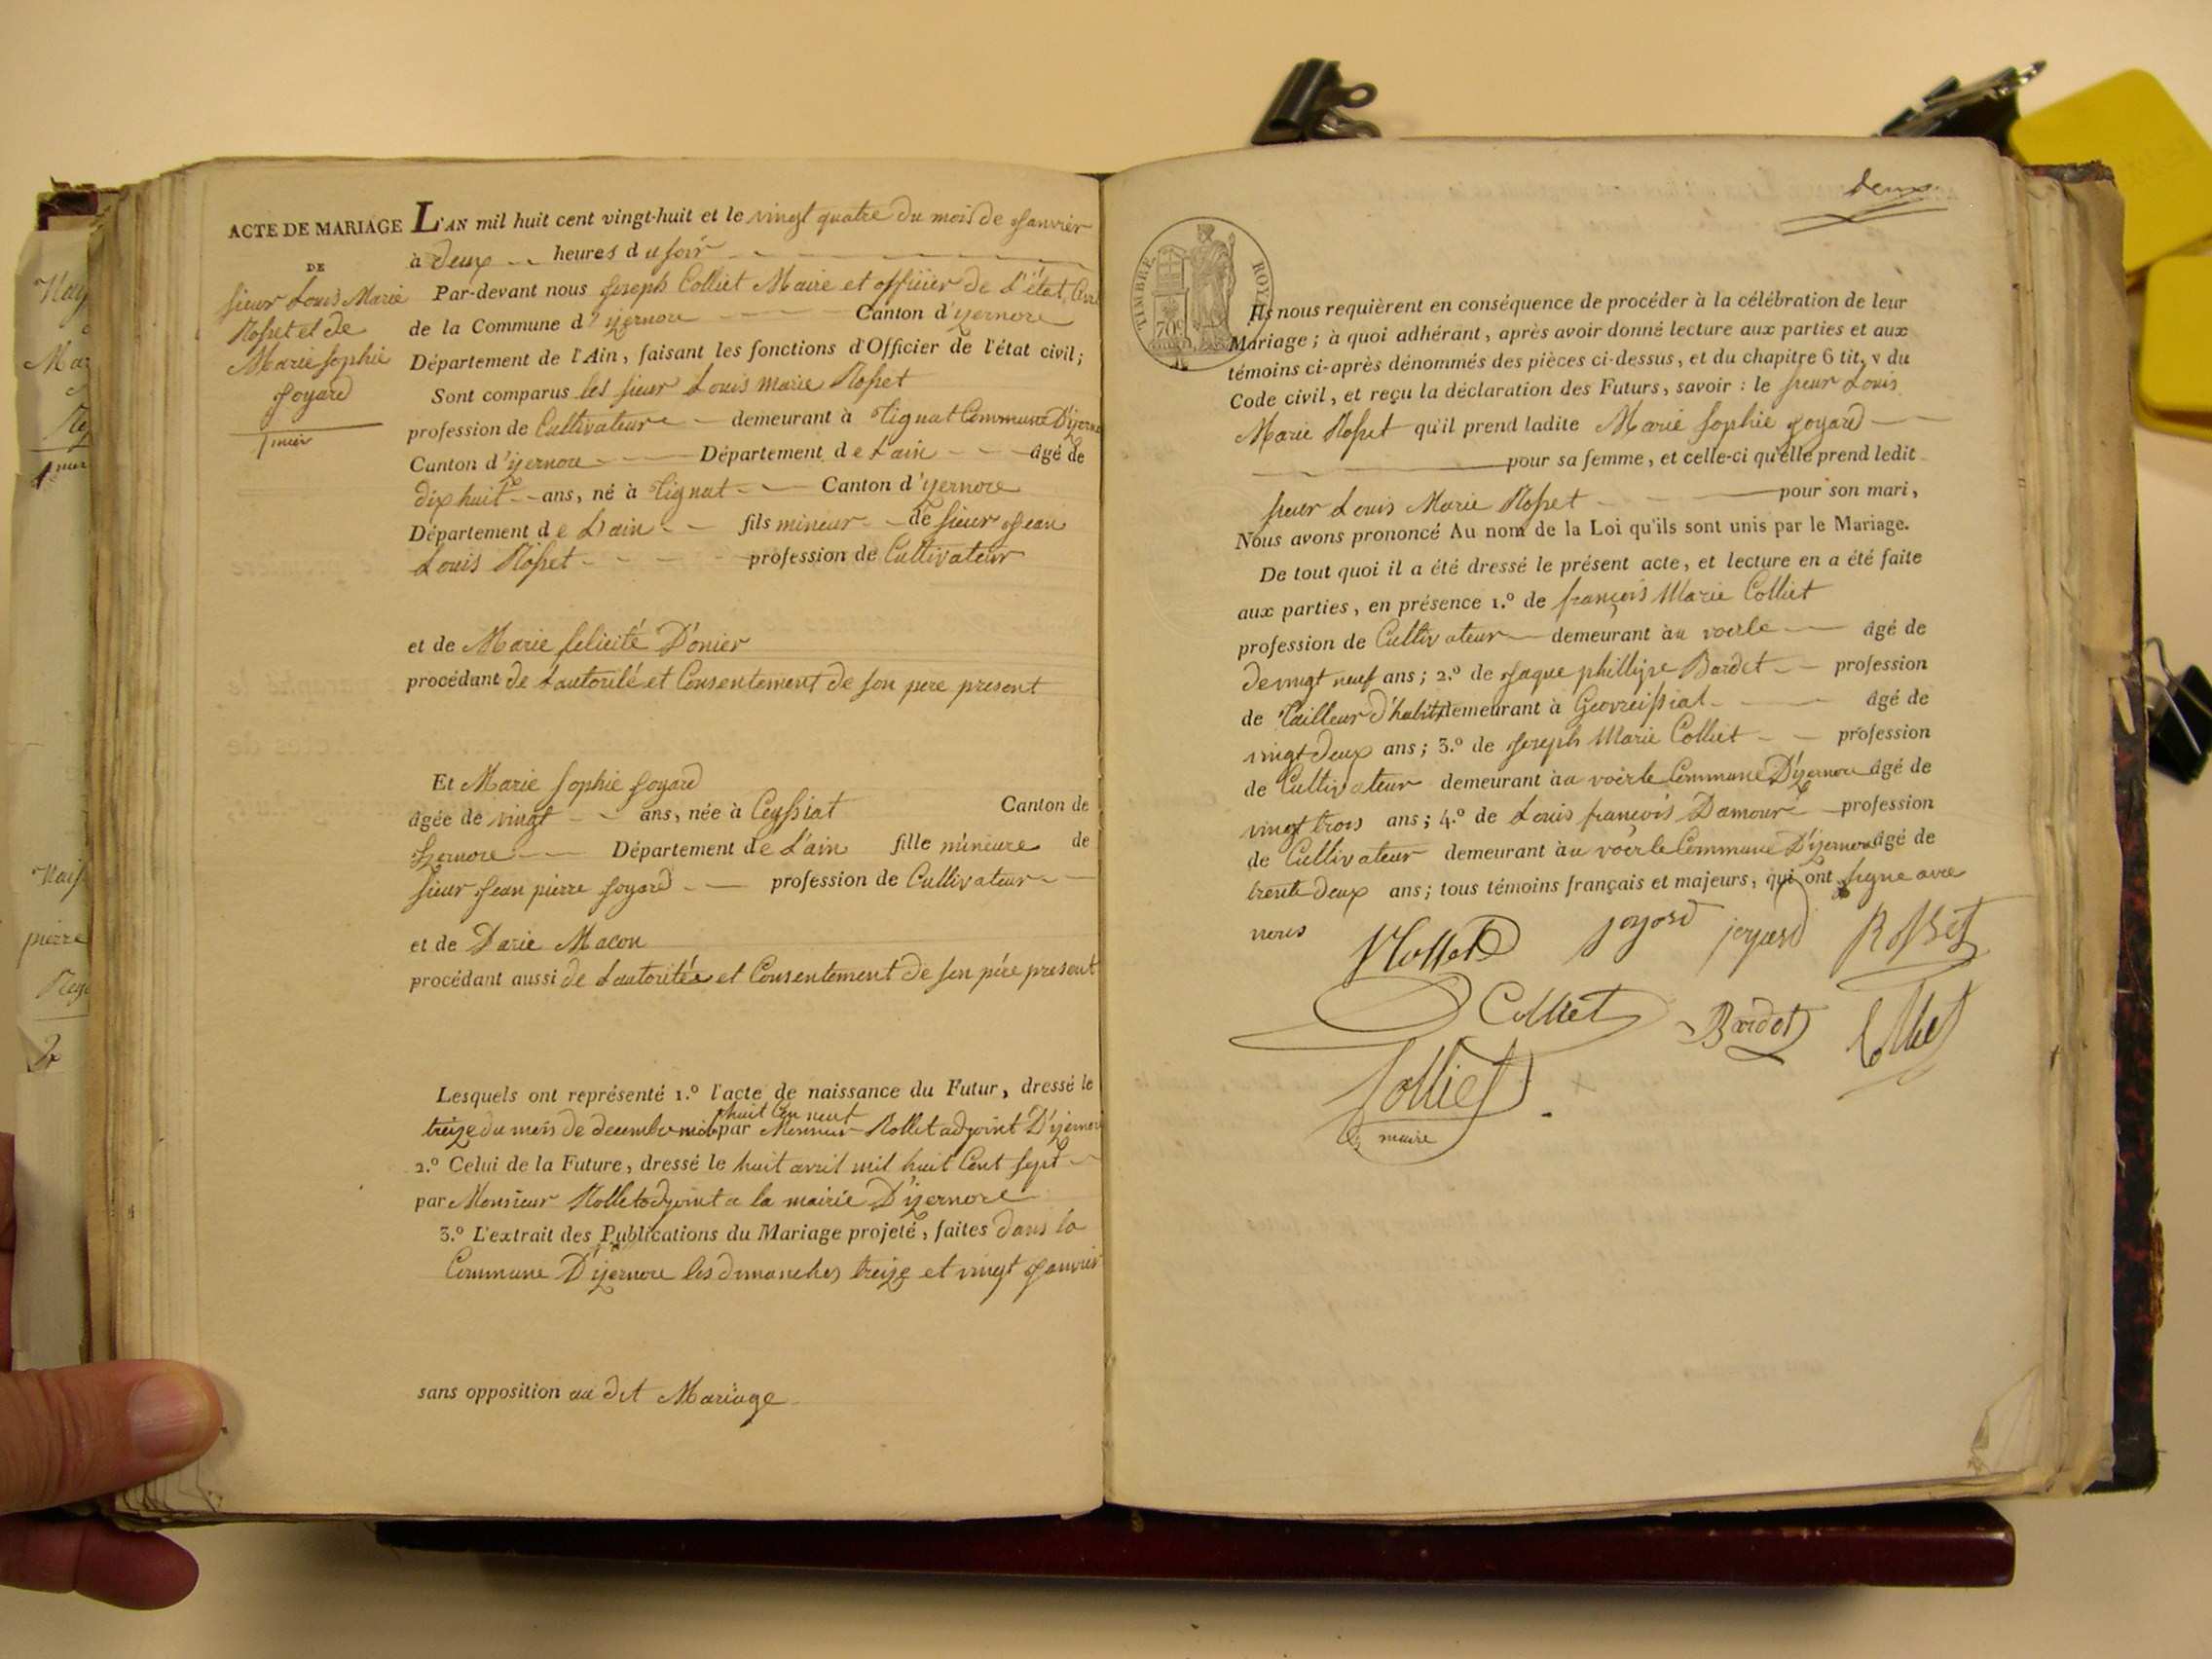 ACTE DE MARIAGE
DE
sieur Louis Marie
Rosset et de
Marie Sophie
Joyard
1 mier
L'AN mil huit cent vingt-huit et le vingt quatre du mois de Janvier
à deux heures du soir
Par-devant nous Joseph Colliet Maire et officier de l'état Civil
de la Commune d'izernore Canton d'izernore
Département de l'Ain, faisant les fonctions d'Officier de l'état civil;
Sont comparus les sieur Louis marie Rosset
profession de Cultivateur demeurant à Tignat Commune D'izernore
Canton d'izernore Département de L'ain âgé de
dix huit ans, né à Tignat Canton d'izernore
Département de L'ain fils mineur de sieur Jean
Louis Rosset profession de Cultivateur
et de Marie felicité D'onier
procédant de L'autorité et Consentement de son pere present
Et Marie Sophie Joyard
âgée de vingt ans, née à Ceyssiat Canton de
Izernore Département de L'ain fille mineure de
sieur Jean pierre Joyard profession de Cultivateur
et de Darie Macon
procédant aussi de L'autoritée et Consentement de son pére present
Lesquels ont représenté 1.º l'acte de naissance du Futur, dressé le
huit Cen neuf
treize du mois de decembre mil par Monsieur Rollet adjoint D'izernore
2.º Celui de la Future, dressé le huit avril mil huit Cent sept
par Monsieur Rollet adjoint a la mairie D'izernore
3.º L'extrait des Publications du Mariage projeté, faites dans la
Commune D'izernore les dimanches treize et vingt Janvier
sans opposition au dit Mariage
deux
TIMBRE ROYAL
70c
Ils nous requièrent en conséquence de procéder à la célébration de leur
Mariage; à quoi adhérant, après avoir donné lecture aux parties et aux
témoins ci-après dénommés des pièces ci-dessus, et du chapitre 6 tit. v du
Code civil, et reçu la déclaration des Futurs, savoir : le sieur Louis
Marie Rosset qu'il prend ladite Marie Sophie Joyard
pour sa femme, et celle-ci qu'elle prend ledit
sieur Louis Marie Rosset pour son mari,
Nous avons prononcé Au nom de la Loi qu'ils sont unis par le Mariage.
De tout quoi il a été dressé le présent acte, et lecture en a été faite
aux parties, en présence 1.º de françois Marie Colliet
profession de Cultivateur demeurant au voerle âgé de
de vingt neuf ans; 2.º de Jaque phillipe Bardet profession
de Tailleur d'habits demeurant à Geovreissiat âgé de
vingt deux ans; 3.º de Joseph Marie Colliet profession
de Cultivateur demeurant au voerle Commune D'izernore âgé de
vingt trois ans; 4.º de Louis françois Damour profession
de Cultivateur demeurant au voerle Commune D'izernore âgé de
trente deux ans; tous témoins français et majeurs, qui ont signe avec
nous Rosset joyard joyard Rosset
Colliet Bardet Colliet
Colliet
maire